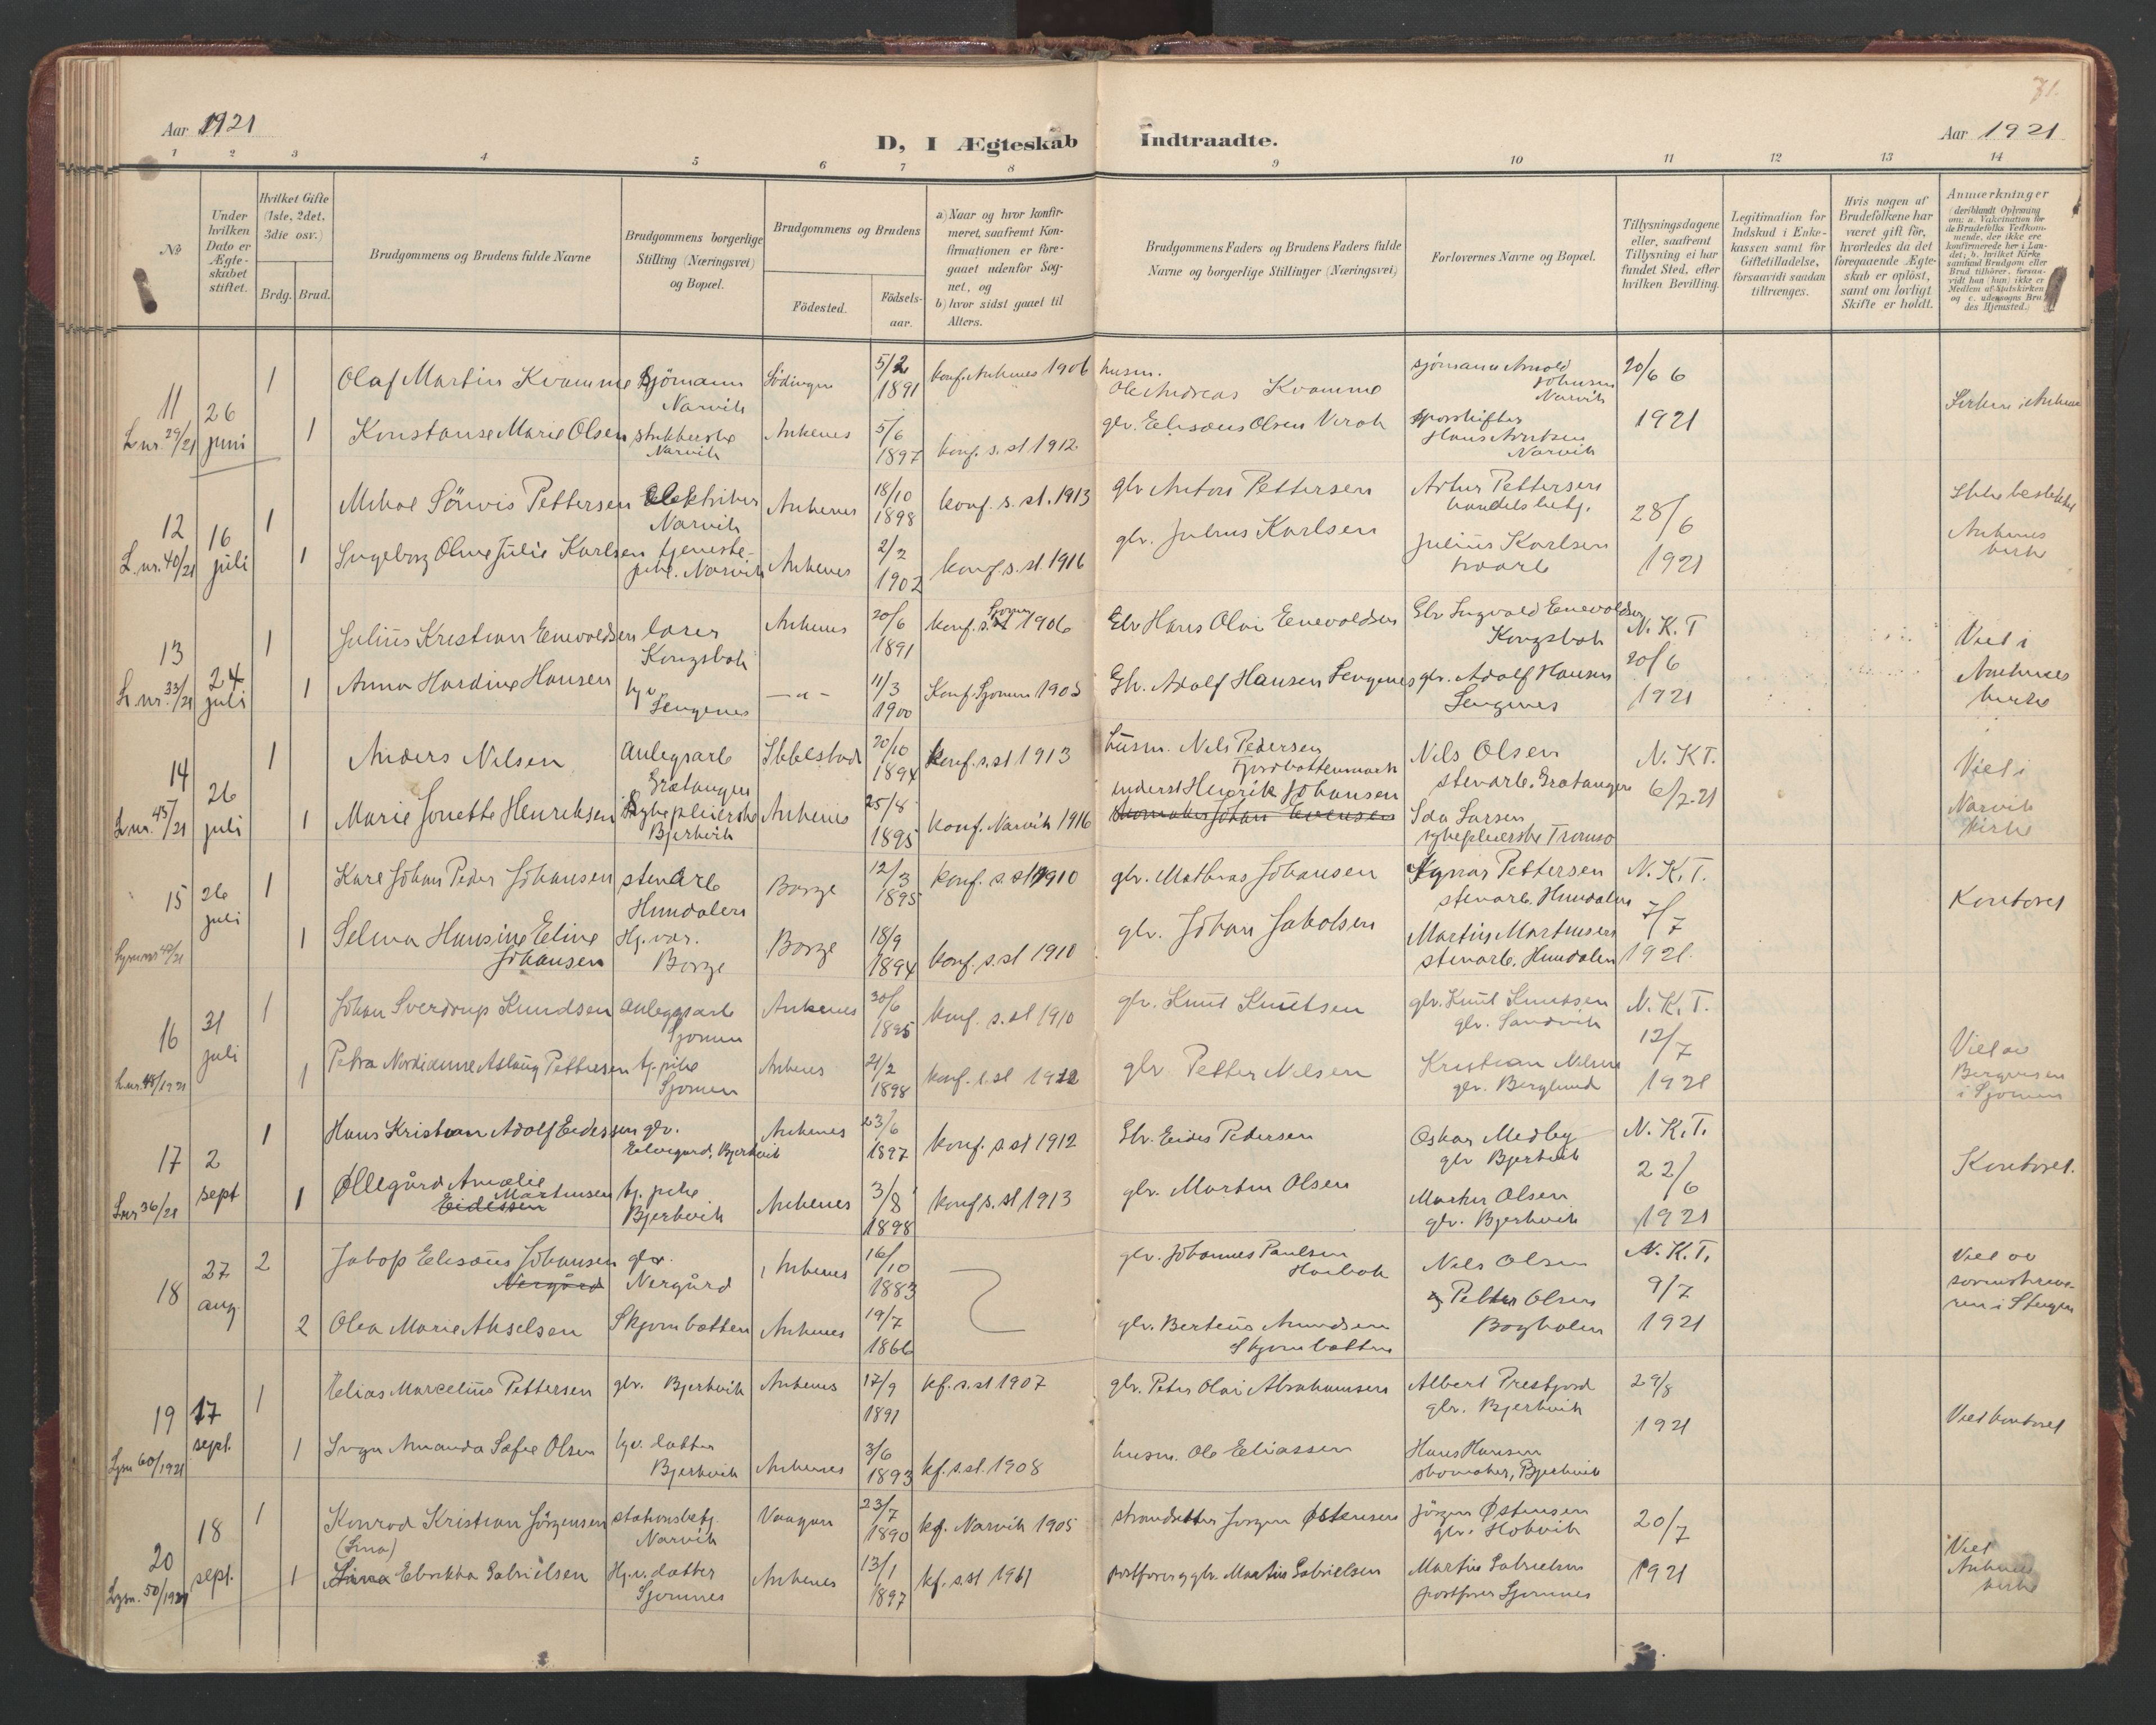 71.
Aar 1921
D, I Ægteskab Indtraadte.
Aar 1921
1 2 3 4 5 6 7 8 9 10 11 12 13 14
No
Under hvilken Dato er Ægteskabet stiftet.
Hvilket Gifte (1ste, 2det, 3die osv.)
Brdg. Brud.
Brudgommens og Brudens fulde Navne
Brudgommens borgerlige Stilling (Næringsvei) og Bopæl.
Brudgommens og Brudens
Födested.
Födselsaar.
a) Naar og hvor konfirmeret, saafremt Konfirmationen er foregaaet udenfor Sognet, og
b) hvor sidst gaaet til Alters.
Brudgommens Faders og Brudens Faders fulde Navne og borgerlige Stillinger (Næringsvei)
Forlovernes Navne og Bopæl.
Tillysningsdagene eller, saafremt Tillysning ei har fundet Sted, efter hvilken Bevilling.
Legitimation for Indskud i Enkekassen samt for Giftetilladelse, forsaavidt saadan tiltrænges.
Hvis nogen af Brudefolkene har været gift før, hvorledes da det foregaaende Ægteskab er oplöst, samt om lovligt Skifte er holdt.
Anmærkninger
(deriblandt Oplysning om: a. Vakcination for de Brudefolks Vedkommende, der ikke ere konfirmerede her i Landet; b. hvilket Kirkesamfund Brudgom eller Brud tilhörer, forsaavidt han (hun) ikke er Medlem af Statskirken og c. udensogns Brudes Hjemsted.)
11 L.nr. 29/21 26 juni
1 Olaf Martin Kvamme Sjömann Narvik Lödingen 5/2 1891 konf. Ankenes 1906 husm. Ole Andreas Kvamme sjömann Arnold Johnsen Narvik 20/6
1 Konstanse Marie Olsen Narvik Ankenes 5/6 1897 konf. s. st 1912 sporskifter Narvik 1921
12 L.nr. 40/21 16 juli
1 Pettersen Narvik Ankenes 18/10 1898 konf. s. st. 1913 gbr Anton Pettersen Artur Pettersen handelsbetj. 28/6
1 Ingeborg Oline Julie Karlsen tjeneste- pike. Narvik Ankenes 2/2 1902 konf. s. st. 1916 gbr. Julius Karlsen Julius Karlsen 1921 Ankenes kirke
13 L.nr. 33/21 24 juli
1 Julius Kristian Enevoldsen lærer Kongsbak Ankenes 20/6 1891 konf. s. st 1906 Gbr Hans Olai Enevoldsen Gbr Ingvald Enevoldsen Kongsbak N.K.T 20/6 Viet i
1 Anna Hardine Hansen Lengenes —"— 11/3 1900 Konf. Sjomen Gbr. Adolf Hansen Lengenes gbr. Adolf Hansen Lengenes 1921 Ankenes kirke
14 L.nr. 45/21 26 juli
1 Anders Nilsen Anlegsarb Gratangen Ibbestad 20/10 1894 konf. s. st 1913 husm. Nils Pedersen Fjordbottenmark Nils Olsen stenarb. Gratangen N. K.T. 6/7-21 Viet i
1 Marie Jonette Henriksen Sykepleierske Bjerkvik Ankenes 25/8 1895 konf. Narvik 1916 inderst Henrik Johansen Ida Larsen sykepleierske Tromsø Narvik kirke
15 26 juli
1 Karl Johan Peder Johansen stenarb Hundalen Borge 12/3 1895 konf. s. st 1910 gbr. Mathias Johansen Pettersen stenarb. Hundalen N.K.T. 7/7 Kontoret
1 Selma Hansine Eline Johansen Hj.vær. Borge Borge 18/9 1894 konf. s. st 1910 gbr. Johan Jakobsen Martin Martinsen stenarb. Hundalen 1921.
16 L.nr. 48/1921 31 juli
1 Johan Sverdrup Knudsen anleggsarb Sjomen Ankenes 30/6 1895 konf. s. st 1910 gbr. Knut Knutsen gbr. Knut Knutsen gbr. Sandvik N.K.T. 12/7
1 Petra Nordianne Aslaug Pettersen tj. pike Sjomen Ankenes 21/2 1898 konf. s. st 1912 gbr. Petter Nilsen Kristian Nilsen gbr. Berglund 1921 Viet av Bergersen i Sjomen
17 L.nr 36/21 2 sept
1 Hans Kristian Adolf Eidessen gbr. Elvegård, Bjerkvik Ankenes 23/6 1897 konf. s. st 1912 Gbr. Eides Pedersen Oskar Medby gbr Bjerkvik N.K.T. 22/6 Kontoret.
1 Øllegård Amalie Martinsen Eidessen tj. pike Bjerkvik Ankenes 3/8 1898 konf s. st 1913 gbr. Martin Olsen Martin Olsen gbr. Bjerkvik 1921
18 27 aug
2 Jakop Elisæus Johansen Nergård gbr. Nergård Ankenes 16/10 1883 gbr. Johannes Paulsen Nils Olsen N.K.T. 9/7 Viet av
2 Olea Marie Akselsen Skjombotten Ankenes 19/7 1866 gbr. Berteus Amundsen Skjombotten og Petter Olsen 1921
19 Lysn 60/1921 17 sept.
1 Elias Marcelius Pettersen gbr. Bjerkvik Ankenes 17/9 1891 kf. s. st 1907 gbr. Peter Olai Abrahamsen Albert Prestjord gbr. Bjerkvik 29/8 1921 Viet kontoret
1 Inga Amanda Sofie Olsen hjv. datter Bjerkvik Ankenes 3/6 1893 kf. s. st. 1908 husm. Ole Eliassen Hans Hansen skomaker, Bjerkvik
20 Lysn. 50/1921 18 sept.
1 Konrad Kristian Jörgensen stationsbetj. Narvik Vaagan 23/7 1890 kf. Narvik 1905 strandsitter Jörgen Østensen Jörgen Østensen gbr. 20/7 Viet
1 Gabrielsen Hj.v. datter Sjomnes Ankenes 13/1 1897 kf. s. st 1911 postfører og gbr. Martin Gabrielsen Martin Gabrielsen postfører Sjomnes 1921 Ankenes kirke